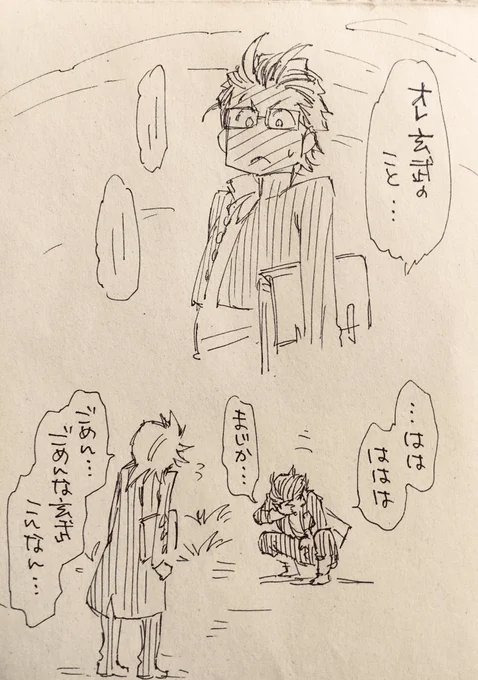 オレ玄弥の
こと…
…はは
ははは
まじか…
ごめん…
ごめんな玄弥
こんなん…